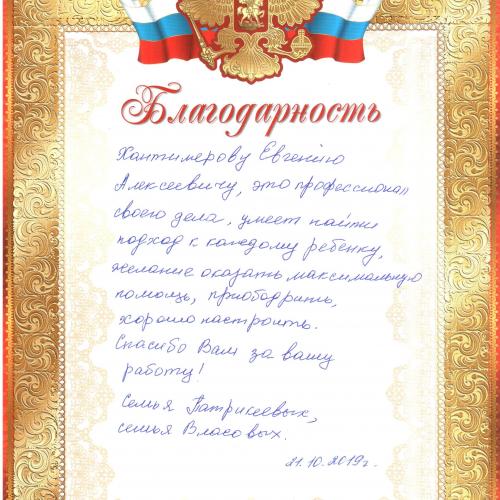 Благодарность
Хантимерову Евгению
Алексеевичу, это профессионал
своего дела, умеет найти
подход к каждому ребенку,
желание оказать максимальную
помощь, приободрить,
хорошо настроить.
Спасибо Вам за вашу
работу!
Семья Патрикеевых,
семья Власовых.
21.10.2019г.